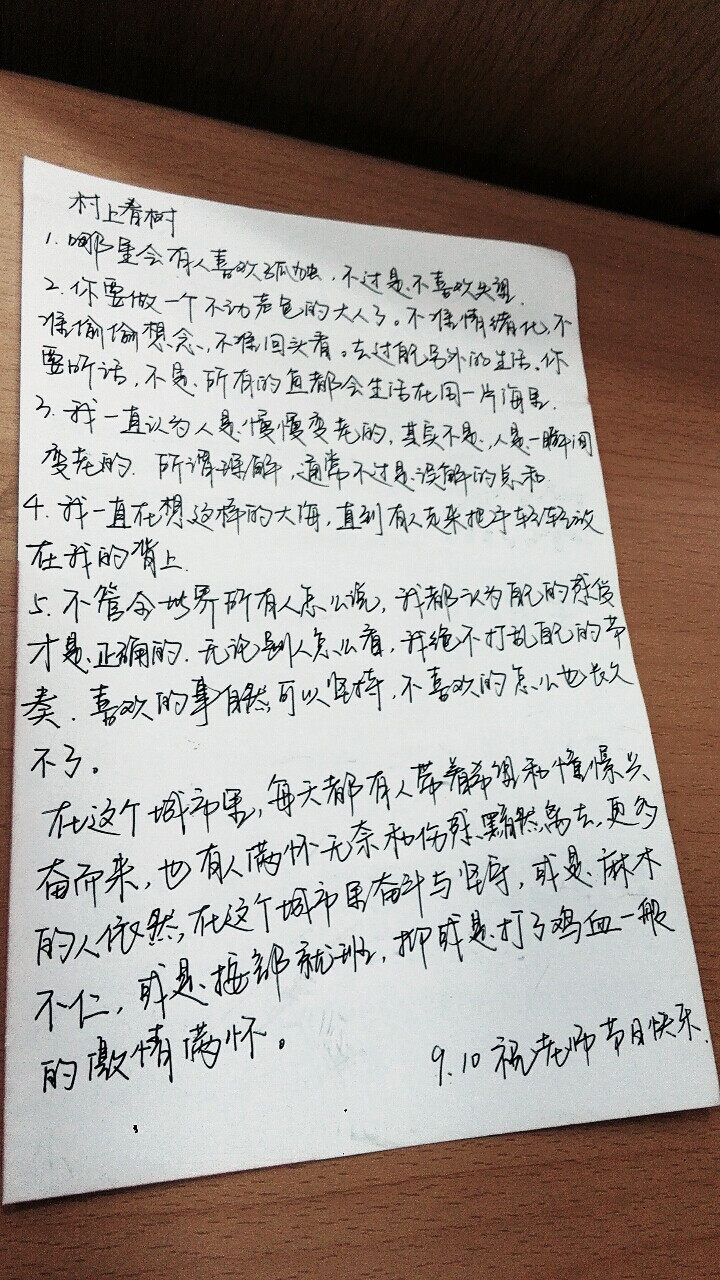 村上春树
1. 哪里会有人喜欢孤独，不过是不喜欢失望.
2. 你要做一个不动声色的大人了。不准情绪化，不
准偷偷想念，不准回头看。去过自己另外的生活。你
要听话，不是所有的鱼都会生活在同一片海里.
3. 我一直认为人是慢慢变老的，其实不是，人是一瞬间
变老的. 所谓理解，通常不过是误解的总和.
4. 我一直在想这样的大海，直到有人走来把手轻轻放
在我的背上.
5. 不管全世界所有人怎么说，我都认为自己的感受
才是正确的. 无论别人怎么看，我绝不打乱自己的节
奏. 喜欢的事自然可以坚持，不喜欢的怎么也长久
不了。
在这个城市里，每天都有人带着希望和憧憬兴
奋而来，也有人满怀无奈和伤感黯然离去，更多
的人依然在这个城市里奋斗与坚守，或是麻木
不仁，或是按部就班，抑或是打了鸡血一般
的激情满怀。
9.10 祝老师节日快乐.